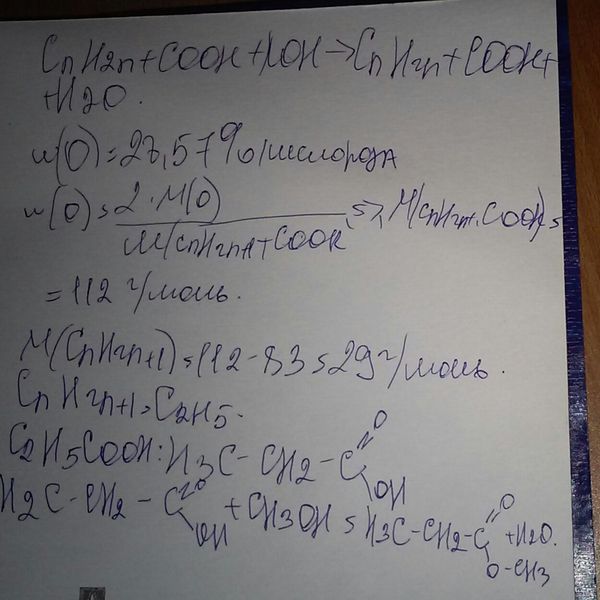 CnH2n+COOH+KOH→CnH2n+COOK+
+H2O.
w(O)=28,57% кислорода
w(O)= 2·M(O) / M(CnH2n+1COOK) => M(CnH2n+1COOK)=
=112 г/моль.
M(CnH2n+1)=112-83=29 г/моль.
CnH2n+1=C2H5.
C2H5COOH: H3C-CH2-C=O OH
H2C-CH2-C=O OH + CH3OH = H3C-CH2-C=O O-CH3 +H2O.